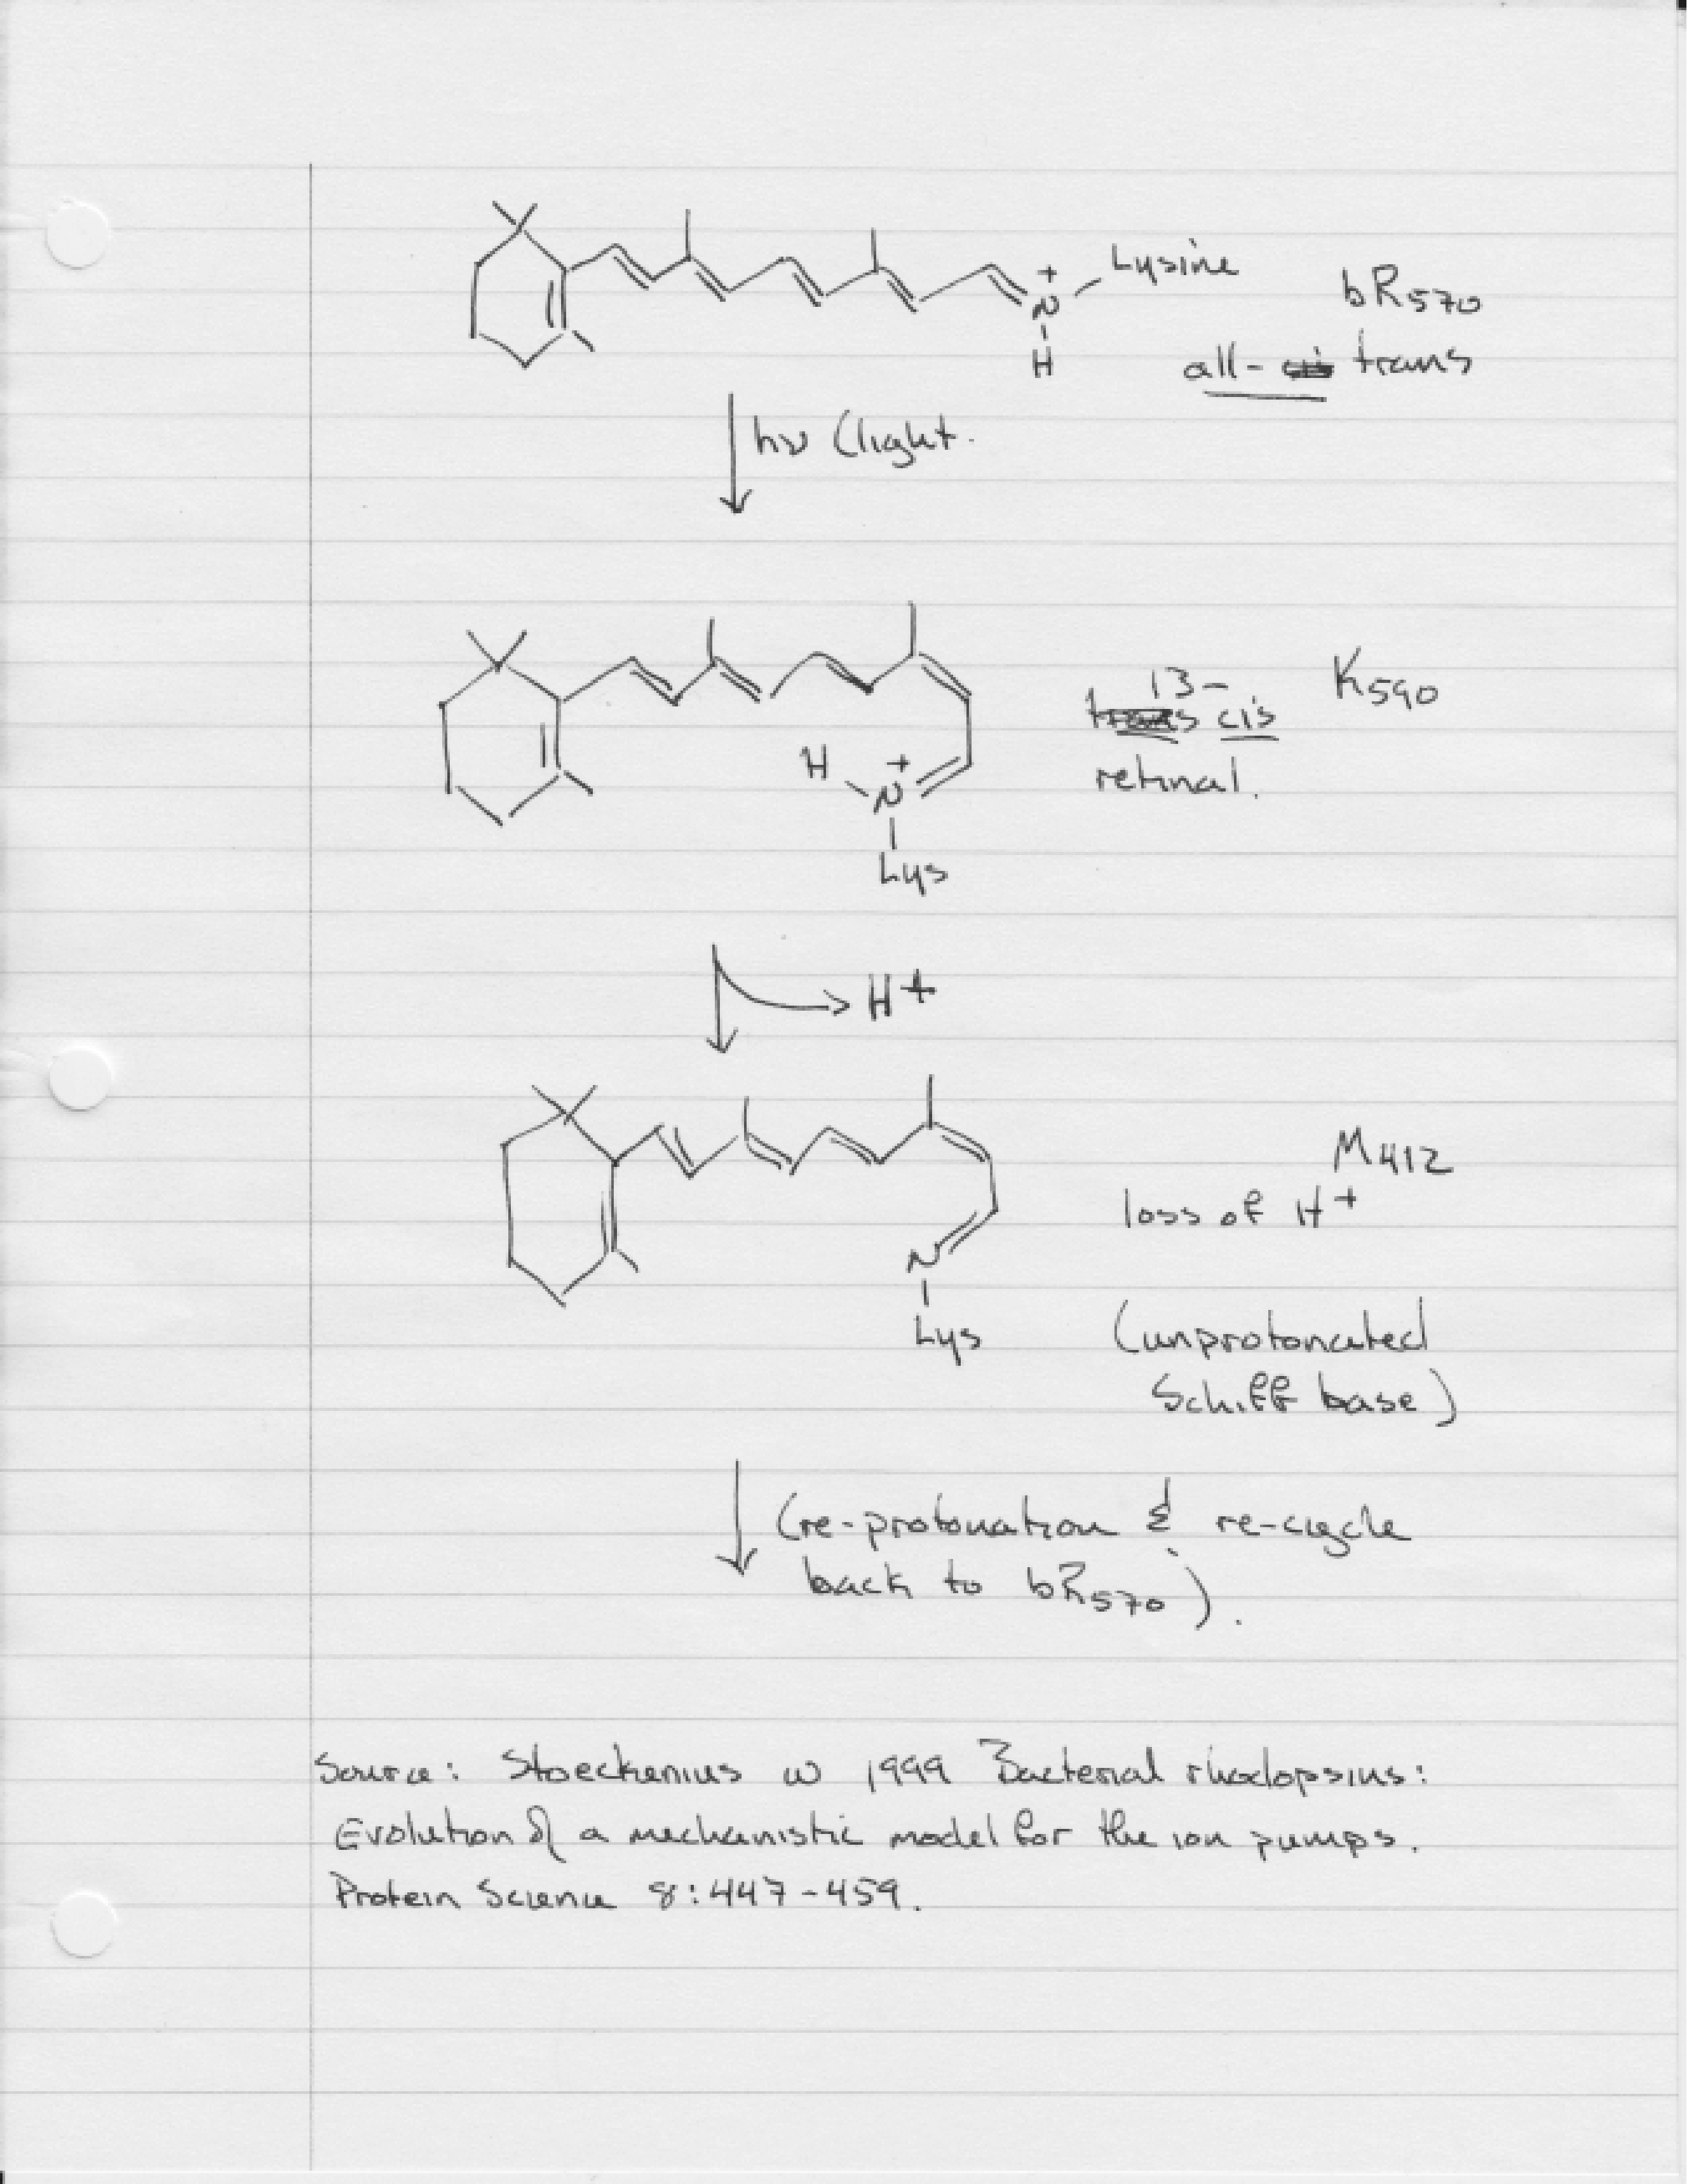 Lysine
+
N
H
bR570
all- trans
hν (light.
13-
K590
trans cis
retinal.
H
+
N
Lys
H+
M412
loss of H+
N
Lys
(unprotonated
Schiff base)
(re-protonation & re-cycle
back to bR570).
Source: Stoeckenius W 1999 Bacterial rhodopsins:
Evolution of a mechanistic model for the ion pumps.
Protein Science 8:447-459.